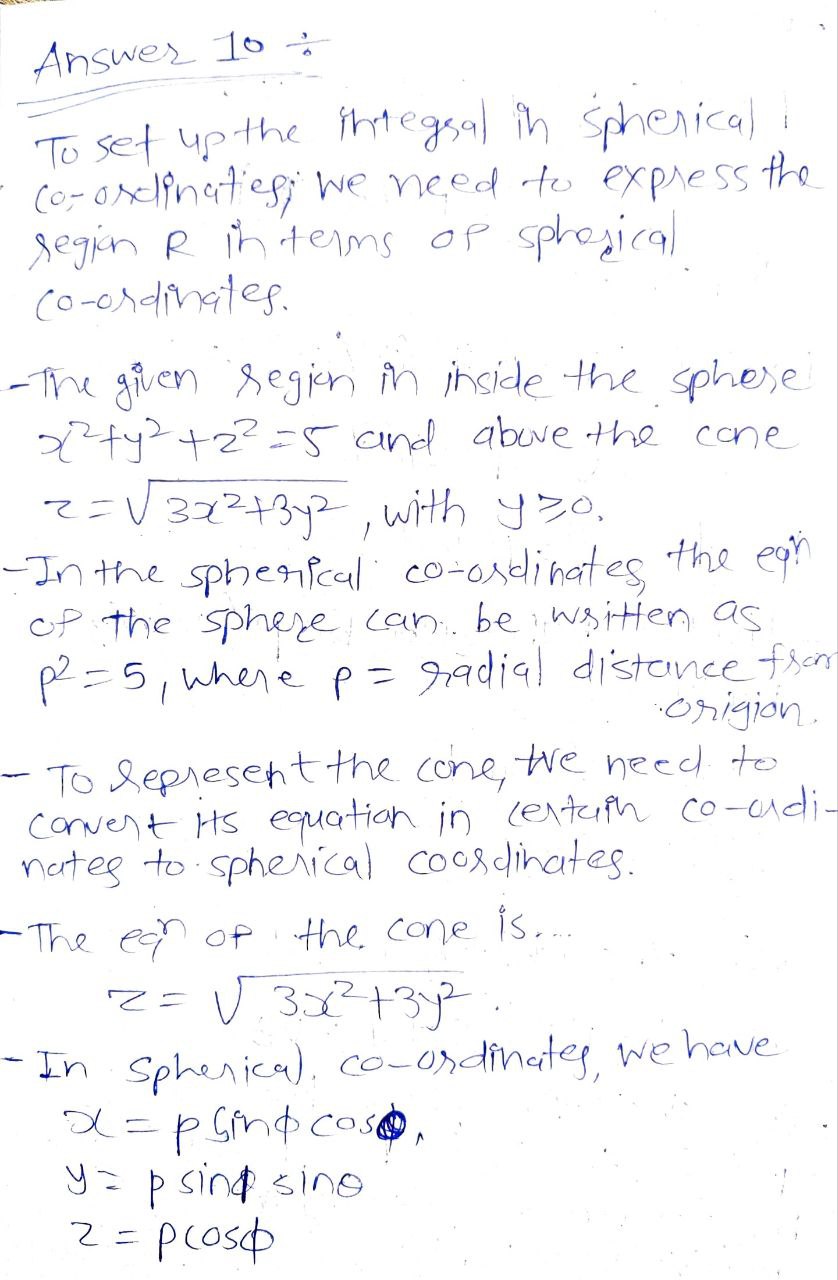 Answer 10 ÷
To set up the integral in spherical
co-ordinates; we need to express the
region R in terms of spherical
co-ordinates.
- The given region in inside the sphere
x²+y²+z²=5 and above the cone
z=√3x²+3y², with y≥0.
- In the spherical co-ordinates, the eqn
of the sphere can be written as
p²=5, where p = radial distance from
origion.
- To represent the cone, we need to
convert its equation in certain co-ordi-
nates to spherical coordinates.
- The eqn of the cone is....
z=√3x²+3y².
- In spherical co-ordinates, we have
x = p sinϕ cosθ,
y= p sinϕ sinθ
z = pcosϕ